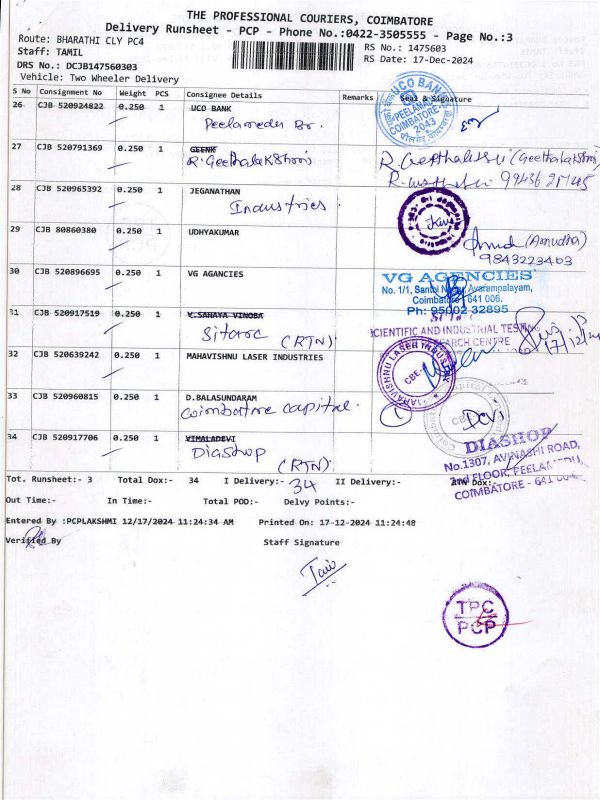 THE PROFESSIONAL COURIERS, COIMBATORE
Delivery Runsheet - PCP - Phone No.:0422-3505555 - Page No.:3
Route: BHARATHI CLY PC4
RS No.: 1475603
Staff: TAMIL
RS Date: 17-Dec-2024
DRS No.: DCJB147560303
Vehicle: Two Wheeler Delivery
S No Consignment No Weight PCS Consignee Details Remarks Seal & Signature
26 CJB 520924822 0.250 1 UCO BANK
Peelamedu Br.
UCO BANK PEELAMEDU COIMBATORE 2043
27 CJB 520791369 0.250 1 GEENK
R. Geethalakshmi
(Geethalakshmi)
28 CJB 520965392 0.250 1 JEGANATHAN
Industries
29 CJB 80860380 0.250 1 UDHYAKUMAR
(Amudha)
9843223403
30 CJB 520896695 0.250 1 VG AGANCIES
VG AGENCIES
No. 1/1, Santhi Nagar, Avarampalayam,
Coimbatore - 641 006.
Ph: 95002 32895
31 CJB 520917519 0.250 1 V.SAHAYA VINOBA
Sitarc (RTN)
SCIENTIFIC AND INDUSTRIAL TESTING
RESEARCH CENTRE
32 CJB 520639242 0.250 1 MAHAVISHNU LASER INDUSTRIES
MAHAVISHNU LASER INDUSTRIES
CBE-4
33 CJB 520960815 0.250 1 D.BALASUNDARAM
Coimbatore capital.
1 Devi
34 CJB 520917706 0.250 1 VIMALADEVI
Diashop
(RTN)
DIASHOP
No.1307, AVINASHI ROAD,
2nd FLOOR, PEELAMEDU,
COIMBATORE - 641 004.
Tot. Runsheet:- 3 Total Dox:- 34 I Delivery:- 34 II Delivery:- RTN Dox:-
Out Time:- In Time:- Total POD:- Delvy Points:-
Entered By :PCPLAKSHMI 12/17/2024 11:24:34 AM Printed On: 17-12-2024 11:24:48
Verified By Staff Signature
TPC
PCP